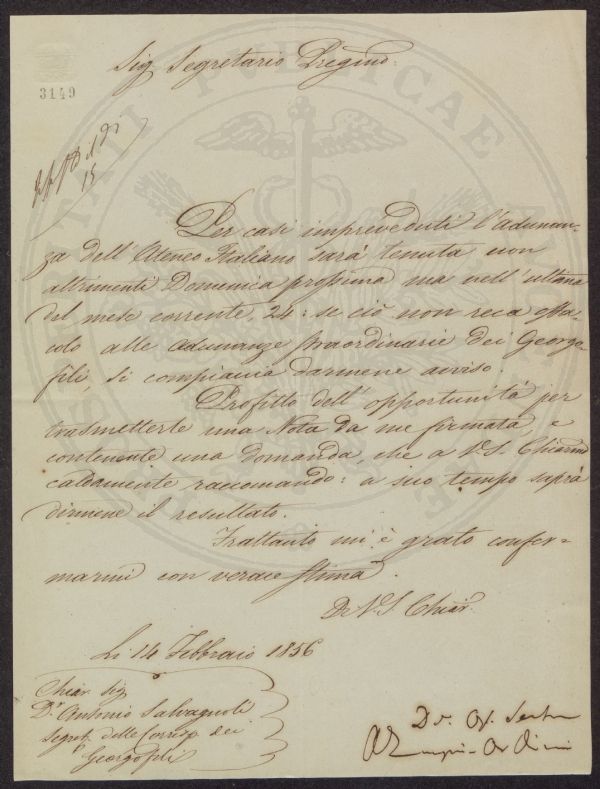 Sig Segretario Pregmo:
3149
15
Per casi impreveduti l'adunan-
za dell'Ateneo Italiano sarà tenuta non
altrimenti Domenica prossima ma nell'ultima
del mese corrente, 24: se ciò non reca osta-
colo alle adunanze straordinarie dei Georgo-
fili, si compiacia darmene avviso.
Profitto dell'opportunità per
trasmetterle una Nota da me firmata, e
contenente una domanda, che a V.S. Chiarma
caldamente raccomando: a suo tempo saprà
dirmene il resultato.
Frattanto mi è grato confer-
marmi con verace stima.
Di V.S. Chiar.
Li 14 Febbraio 1856
Chiar. Sig
Dr. Antonio Salvagnoli
Segret. delle Corrisp. dei
Georgofili